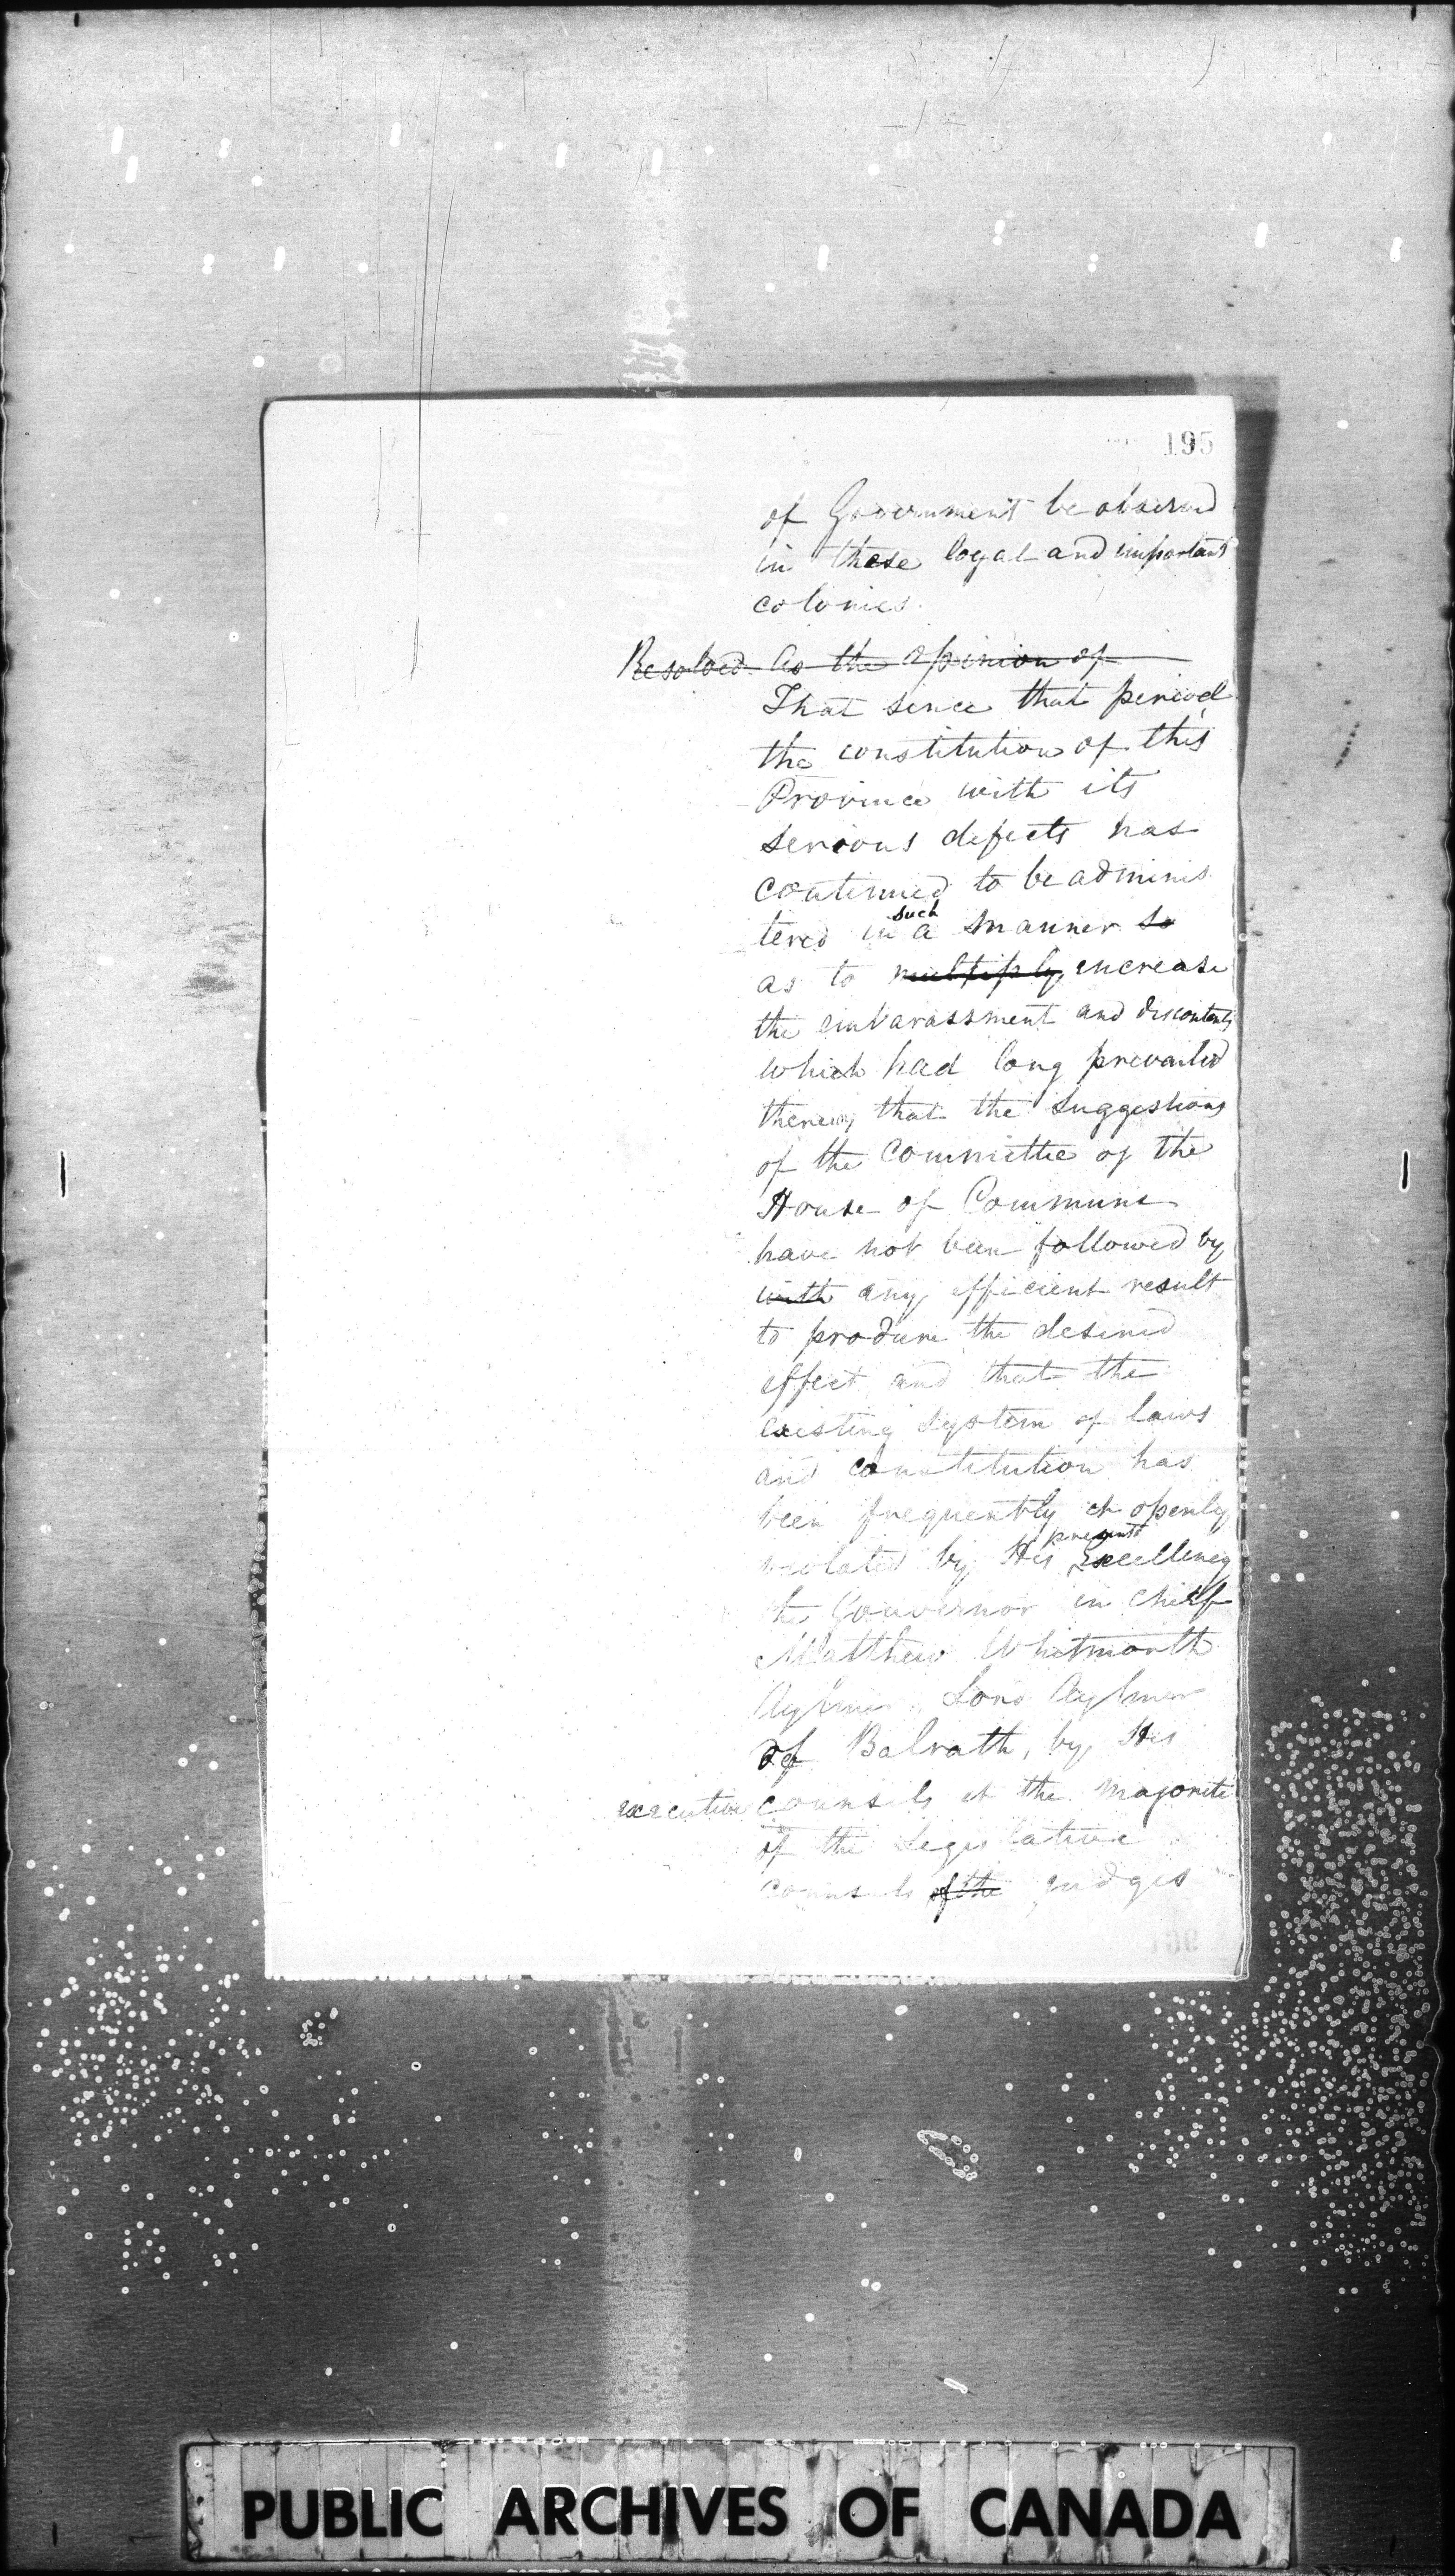 195
of Government be observed
in these loyal and important
colonies.
Resolved as the opinion of
That since that period
the constitution of this
Province with its
serious defects has
continued to be adminis
tered in such a manner so
as to multiply, encrease
the embarassment and discontents
which had long prevailed
therein, that the suggestions
of the committee of the
House of Commune
have not been followed by
with any efficient result
to produce the desired
effect and that the
existing system of laws
and constitution has
been frequently et openly
violated by His present Excellency
the Gouvernor in chief
Matthew Whitworth
Aylmer, Lord Aylmer
of Balrath, by His
executive counsels et the majorite
of the Legislative
counsels of the judges
PUBLIC ARCHIVES OF CANADA